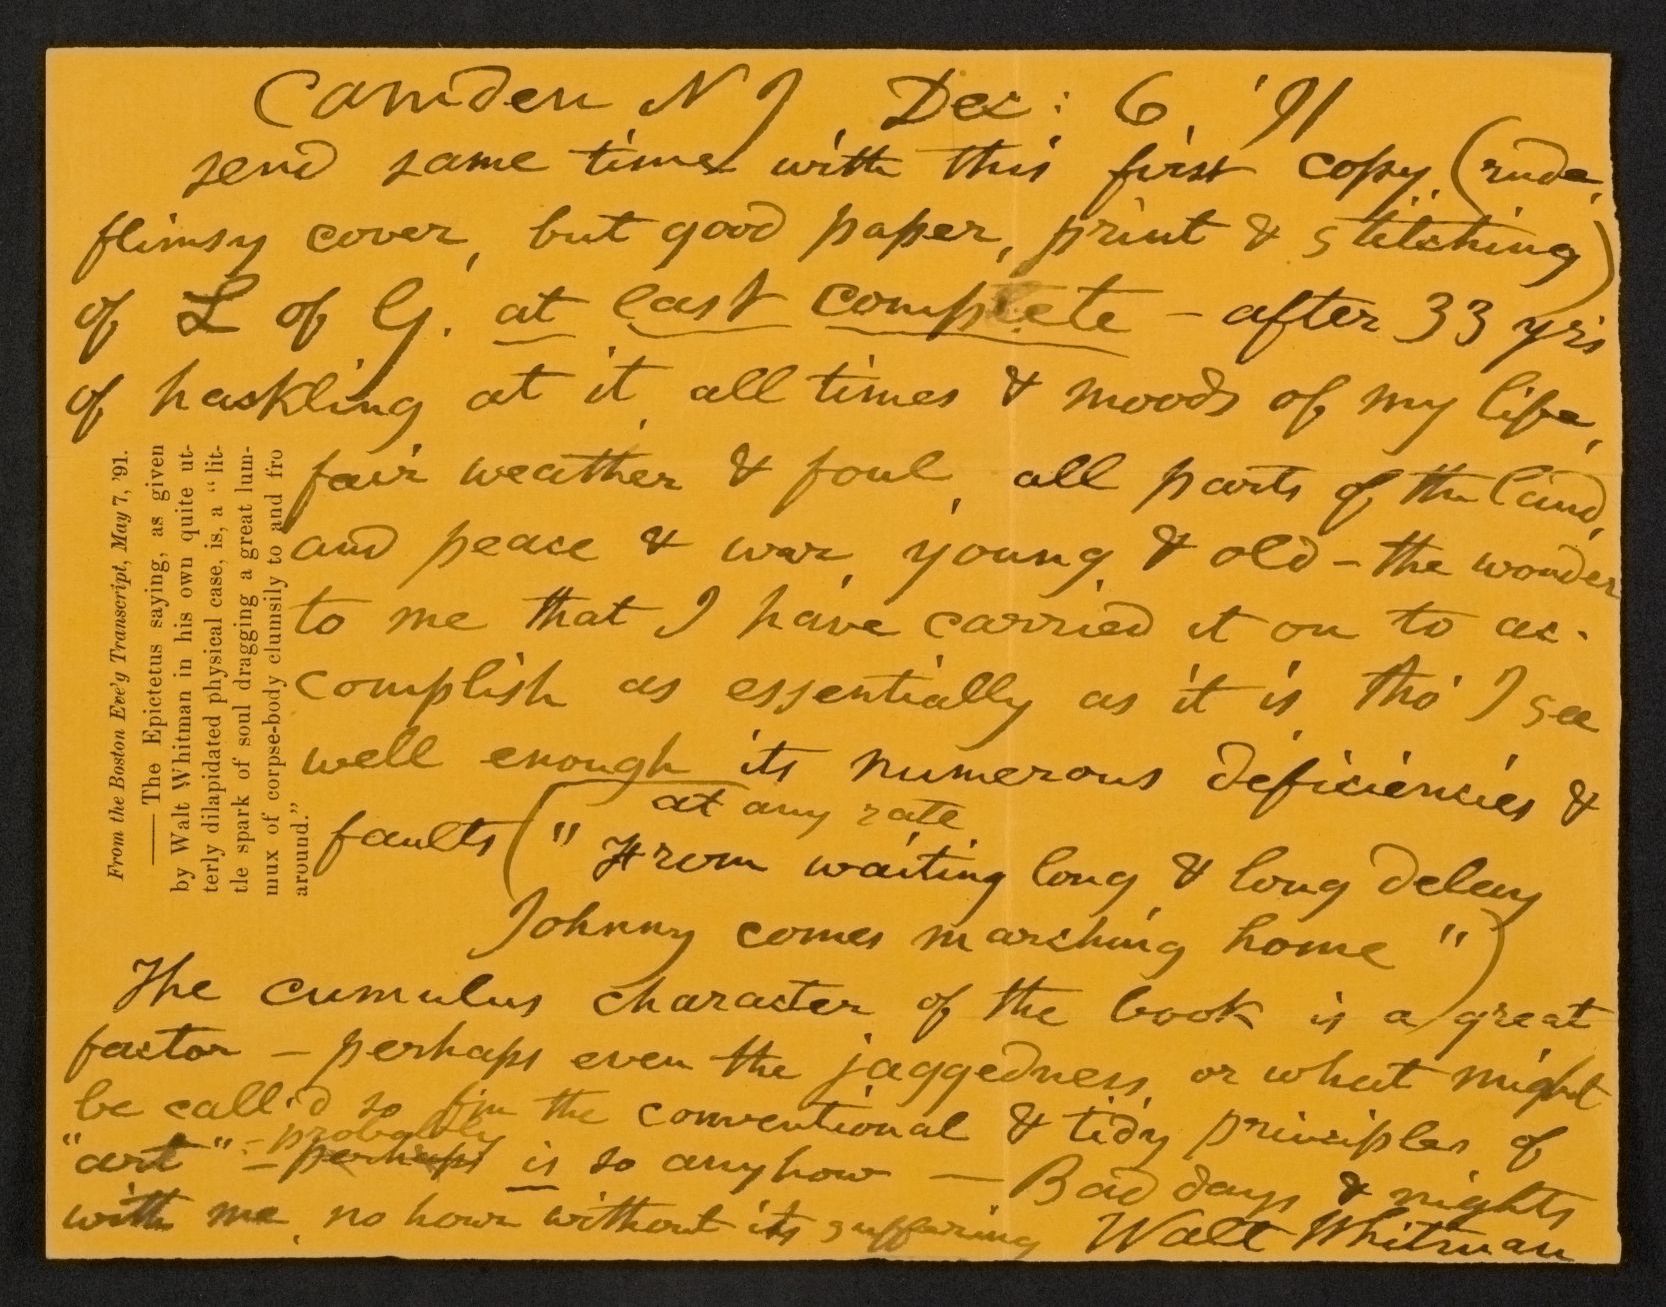 Camden N J Dec: 6 '91
send same time with this first copy (rude,
flimsy cover, but good paper, print & stitching)
of L of G. at last complete – after 33 y'rs
of hackling at it, all times & moods of my life,
fair weather & foul, all parts of the land,
and peace & war, young & old – the wonder
to me that I have carried it on to ac-
complish as essentially as it is, tho' I see
well enough its numerous deficiencies &
faults (at any rate
"From waiting long & long delay
Johnny comes marching home")
The cumulus character of the book is a great
factor – perhaps even the jaggedness, or what might
be call'd so fm the conventional & tidy principles of
"art" – probably perhaps is so anyhow — Bad days & nights
with me, no hour without its suffering Walt Whitman
From the Boston Eve'g Transcript, May 7, '91.
—— The Epictetus saying, as given
by Walt Whitman in his own quite ut-
terly dilapidated physical case, is, a "lit-
tle spark of soul dragging a great lum-
mux of corpse-body clumsily to and fro
around."